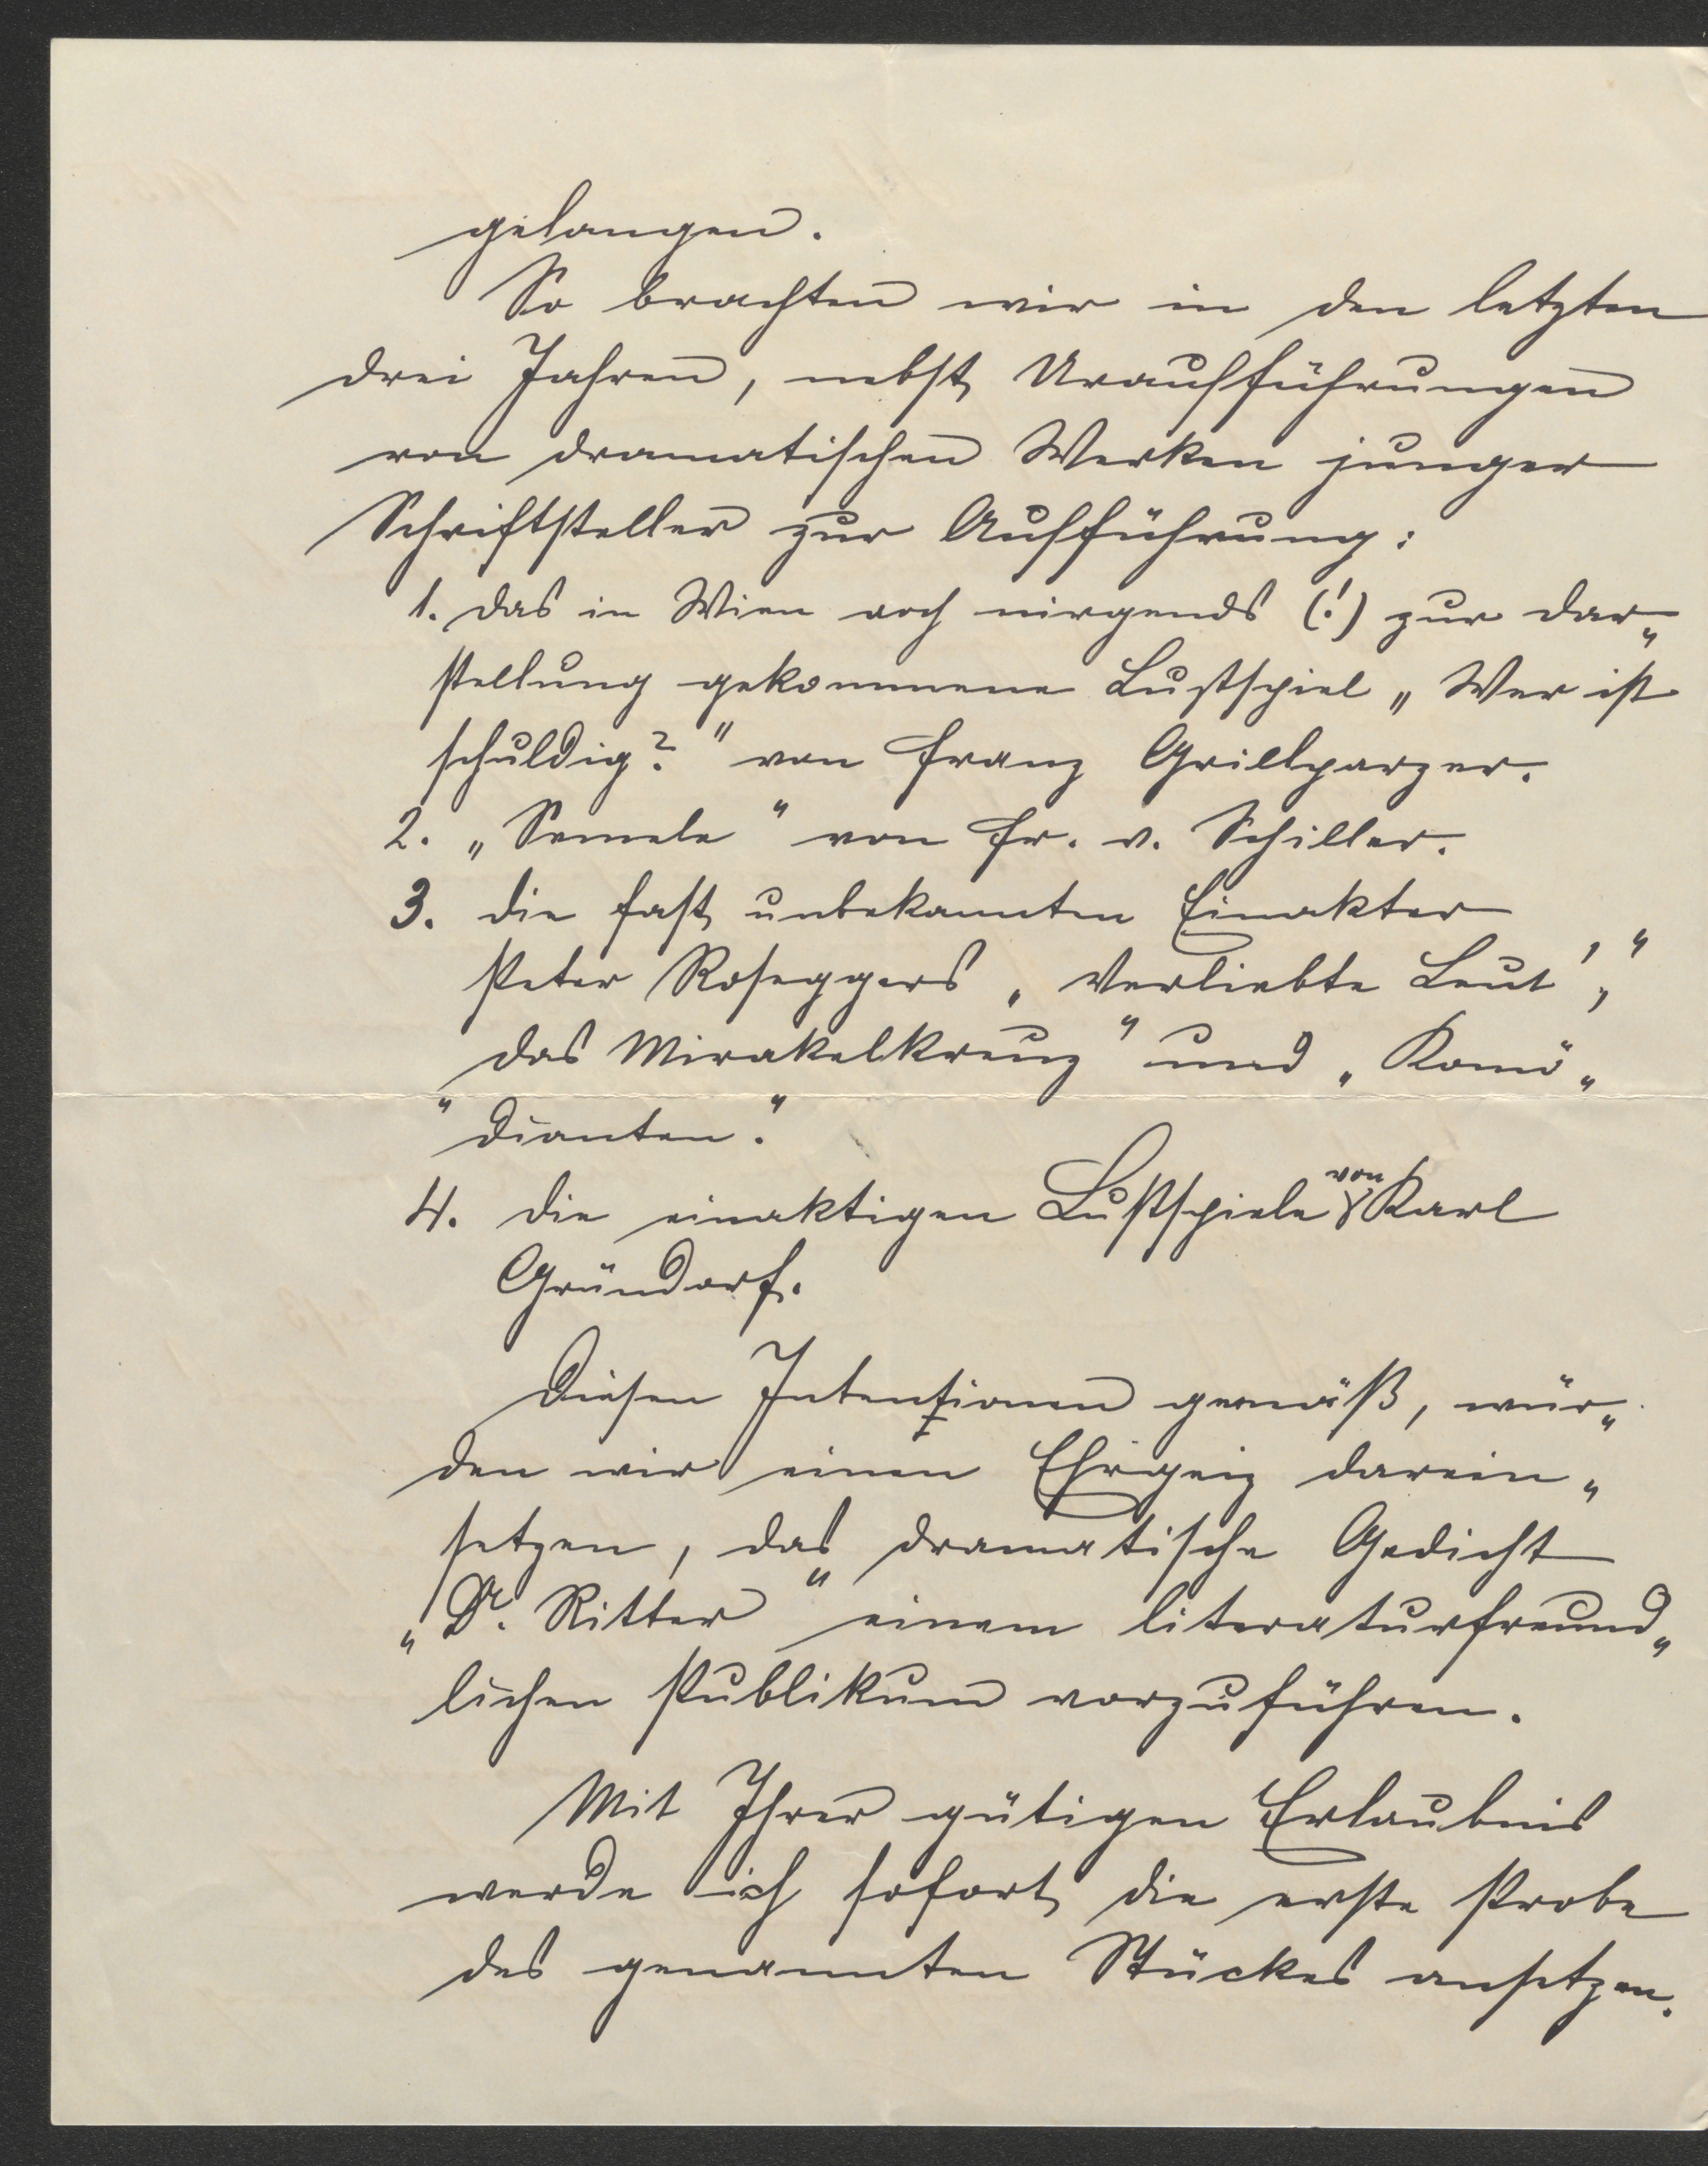 gelangen.
So brachten wir in den letzten
drei Jahren, nebst Uraufführungen
von dramatischen Werken junger
Schriftsteller zur Aufführung:
1. das in Wien noch nirgends (!) zur Dar„
stellung gekommene Lustspiel „Wer ist
schuldig?" von Franz Grillparzer.
2. „Semele" von Fr. v. Schiller.
3. die fast unbekannten Einakter
Peter Roseggers „Verliebte Leut'",
„das Mirakelkreuz" und „Komö„
dianten".
4. die einaktigen Lustspiele von Karl
Gründorf.
Diesen Intentionen gemäß, wür„
den wir einen Ehrgeiz darein„
setzen, das dramatische Gedicht
„Dr. Ritter" einem literaturfreund„
lichen Publikum vorzuführen.
Mit Ihrer gütigen Erlaubnis
werde ich sofort die erste Probe
des genannten Stückes ansetzen.